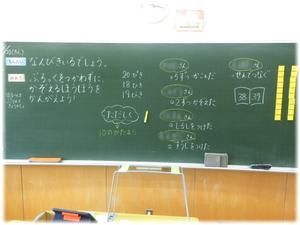 なんびきいるでしょう。
ぶろっくをつかわずに、
かぞえるほうほうを
かんがえよう!
20ぴき
18ひき
19ひき
ただしく
10のかたまり
さん
5ずつかこんだ
さん
2ずつかぞえた
さん
しるしをつけた
さん
すうじをつけた
せんでつなぐ
38 39